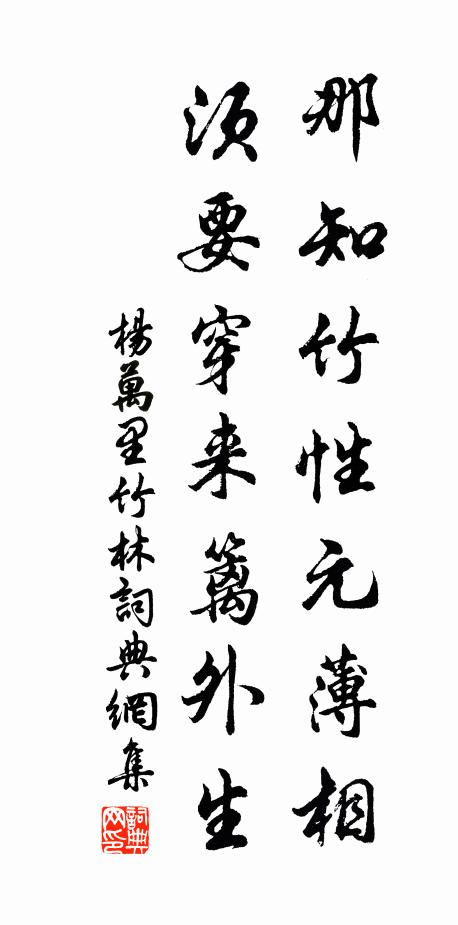 那知竹性元薄相
须要穿来篱外生
楊萬里竹林詞典網集
詞典網印